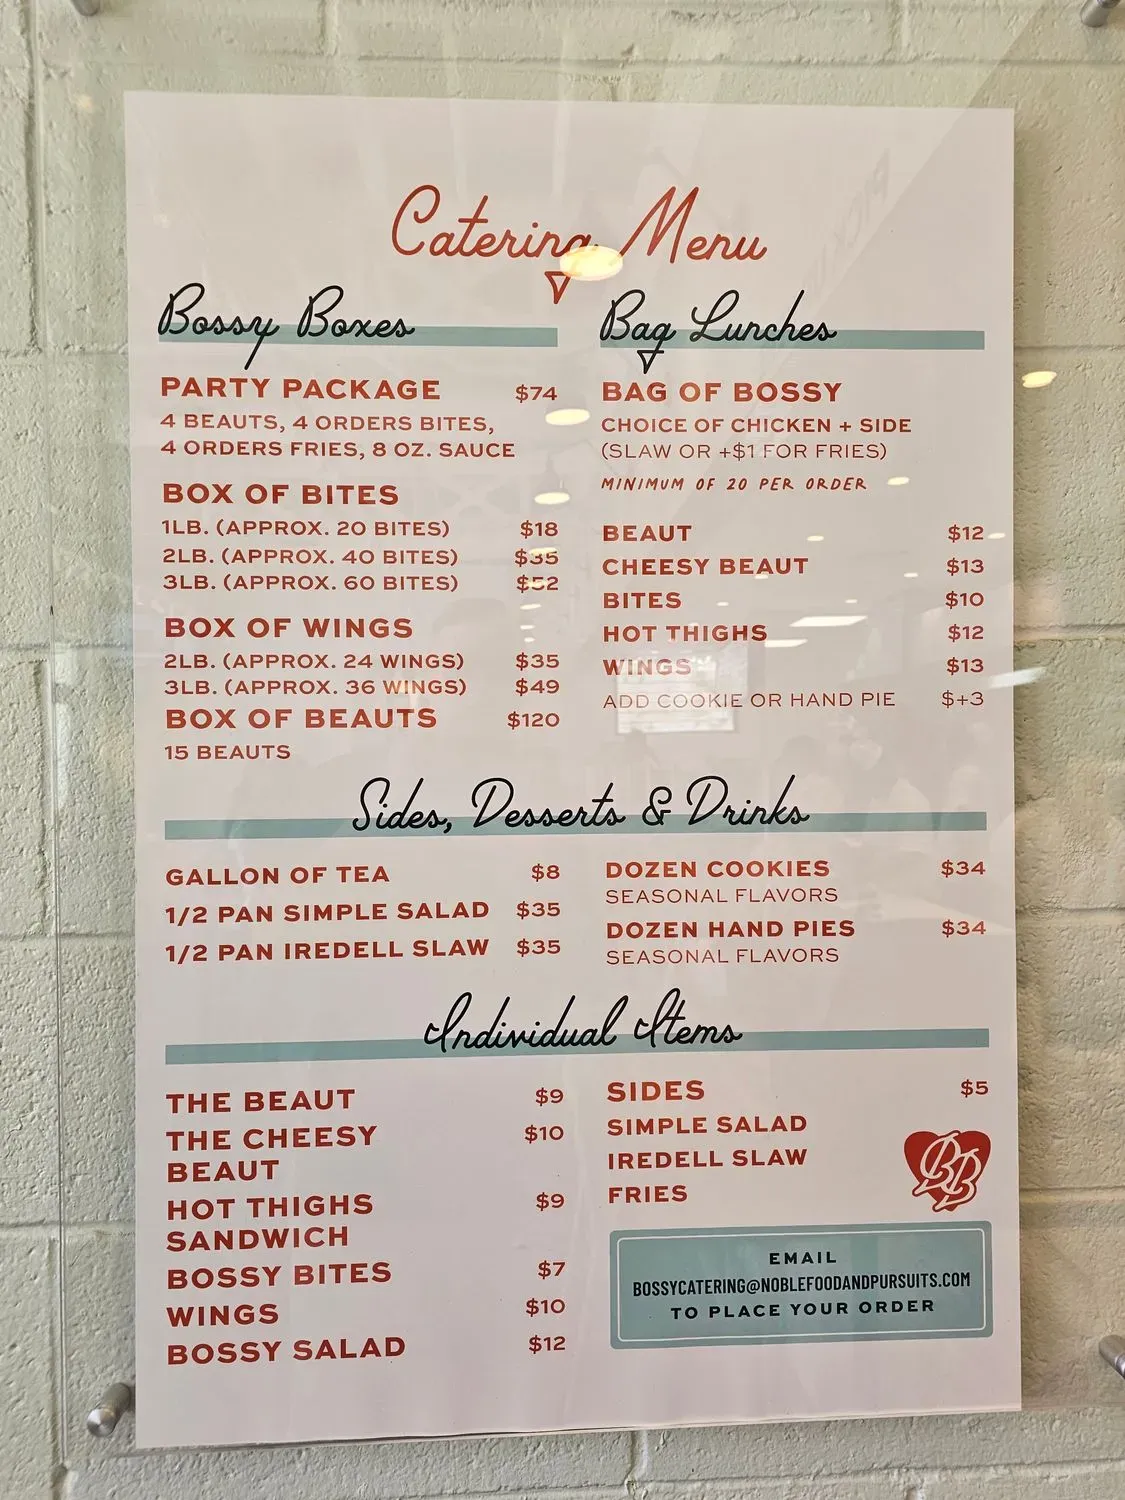 Catering Menu
Bossy Boxes
PARTY PACKAGE $74
4 BEAUTS, 4 ORDERS BITES,
4 ORDERS FRIES, 8 OZ. SAUCE
BOX OF BITES
1LB. (APPROX. 20 BITES) $18
2LB. (APPROX. 40 BITES) $35
3LB. (APPROX. 60 BITES) $52
BOX OF WINGS
2LB. (APPROX. 24 WINGS) $35
3LB. (APPROX. 36 WINGS) $49
BOX OF BEAUTS $120
15 BEAUTS
Bag Lunches
BAG OF BOSSY
CHOICE OF CHICKEN + SIDE
(SLAW OR +$1 FOR FRIES)
MINIMUM OF 20 PER ORDER
BEAUT $12
CHEESY BEAUT $13
BITES $10
HOT THIGHS $12
WINGS $13
ADD COOKIE OR HAND PIE $+3
Sides, Desserts & Drinks
GALLON OF TEA $8
1/2 PAN SIMPLE SALAD $35
1/2 PAN IREDELL SLAW $35
DOZEN COOKIES $34
SEASONAL FLAVORS
DOZEN HAND PIES $34
SEASONAL FLAVORS
Individual Items
THE BEAUT $9
THE CHEESY $10
BEAUT
HOT THIGHS $9
SANDWICH
BOSSY BITES $7
WINGS $10
BOSSY SALAD $12
SIDES $5
SIMPLE SALAD
IREDELL SLAW
FRIES
BB
EMAIL
BOSSYCATERING@NOBLEFOODANDPURSUITS.COM
TO PLACE YOUR ORDER